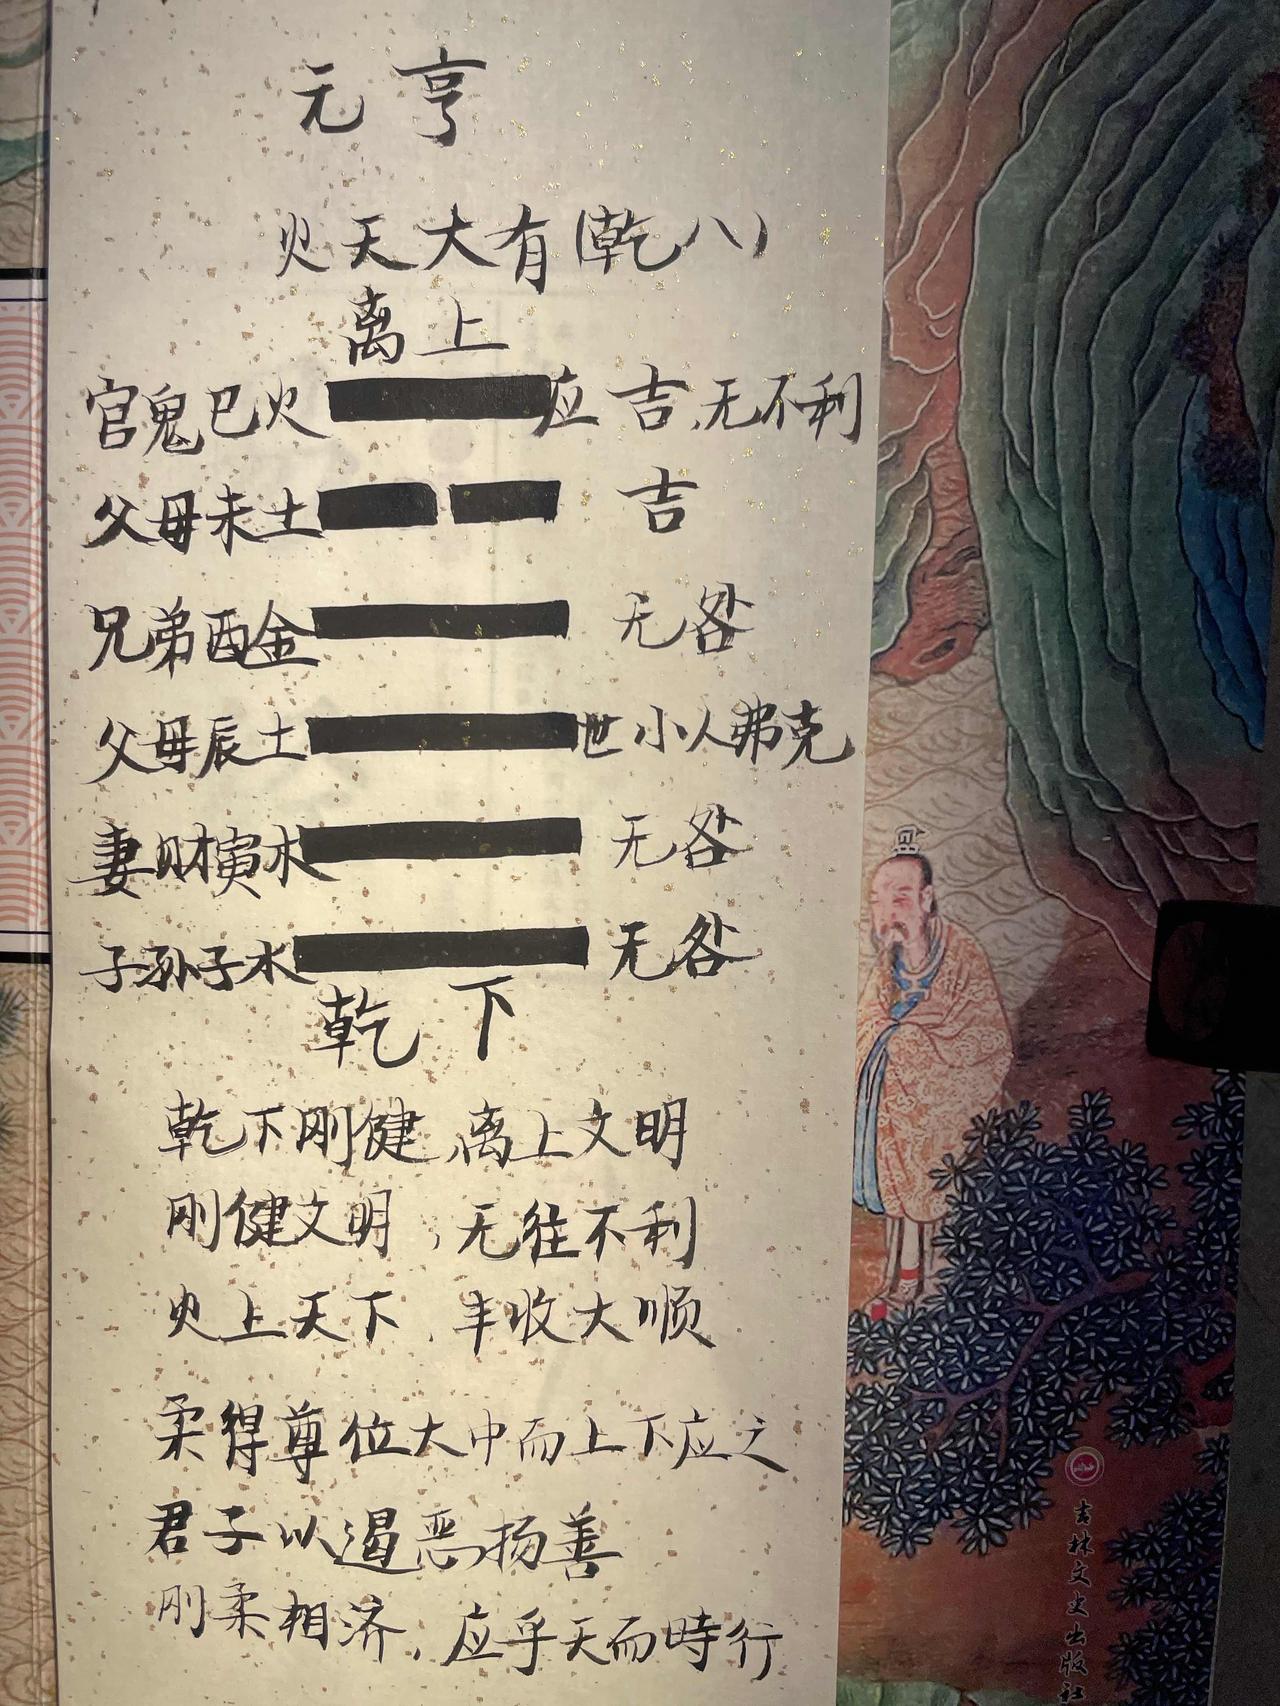 元亨
火天大有(乾八)
离上
官鬼巳火 应 吉,无不利
父母未土 吉
兄弟酉金 无咎
父母辰土 世 小人弗克
妻财寅木 无咎
子孙子水 无咎
乾下
乾下刚健,离上文明
刚健文明,无往不利
火上天下,丰收大顺
柔得尊位大中而上下应之
君子以遏恶扬善
刚柔相济,应乎天而時行
吉林文史出版社